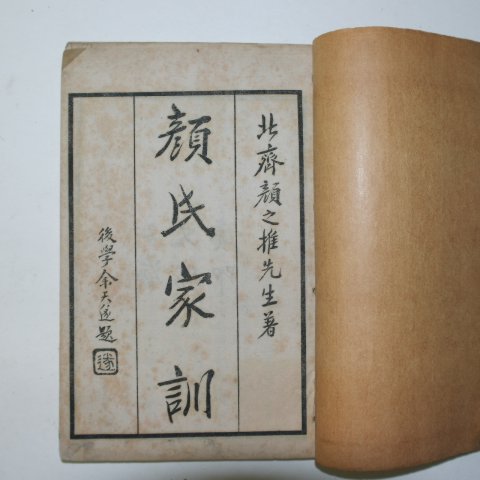 北齊顏之推先生著
顏氏家訓
後學余天遂題
遂